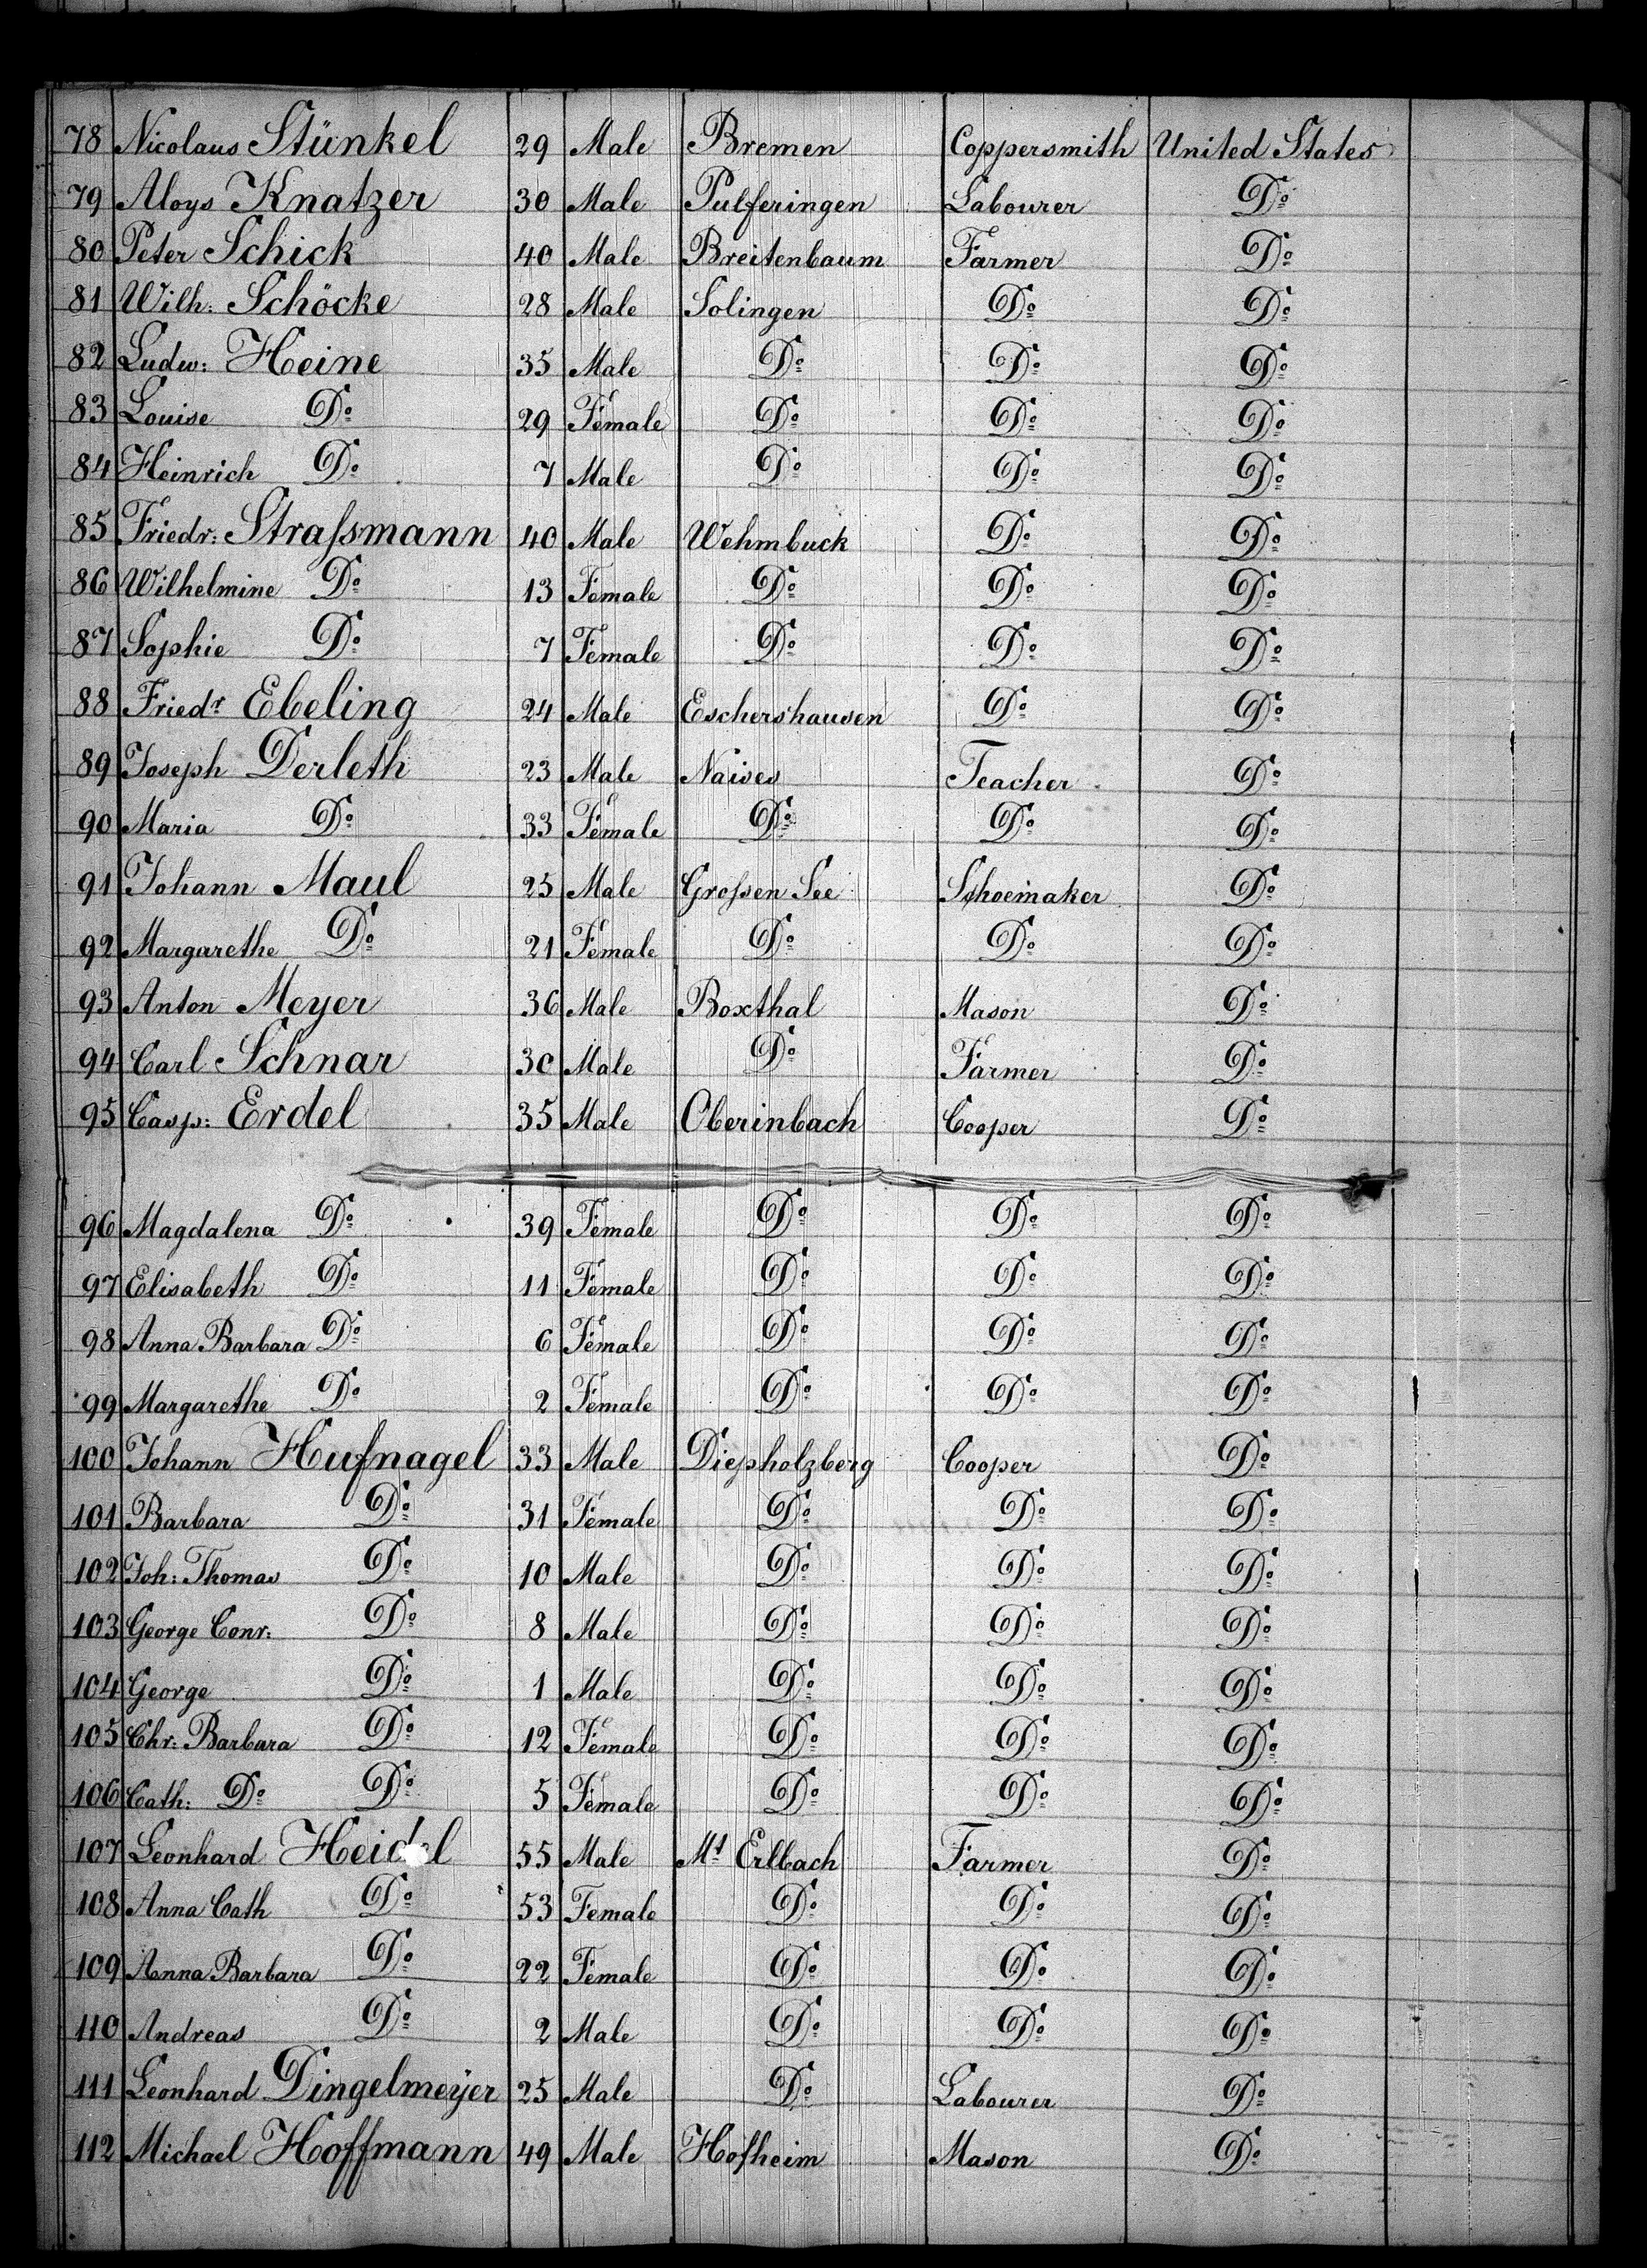 78 Nicolaus Stünkel 29 Male Bremen Coppersmith United States
79 Aloys Knatzer 30 Male Pulferingen Labourer Do
80 Peter Schick 40 Male Breitenbaum Farmer Do
81 Wilh: Schöcke 28 Male Solingen Do Do
82 Ludw: Heine 35 Male Do Do Do
83 Louise Do 29 Female Do Do Do
84 Heinrich Do 7 Male Do Do Do
85 Friedr: Straſsmann 40 Male Wehmbuck Do Do
86 Wilhelmine Do 13 Female Do Do Do
87 Sophie Do 7 Female Do Do Do
88 Friedr Ebeling 24 Male Eschershausen Do Do
89 Joseph Derleth 23 Male Naives Teacher Do
90 Maria Do 33 Female Do Do Do
91 Johann Maul 25 Male Groſsen See Schoemaker Do
92 Margarethe Do 21 Female Do Do Do
93 Anton Meyer 36 Male Boxthal Mason Do
94 Carl Schnar 30 Male Do Farmer Do
95 Casp: Erdel 35 Male Oberinbach Cooper Do
96 Magdalena Do 39 Female Do Do Do
97 Elisabeth Do 11 Female Do Do Do
98 Anna Barbara Do 6 Female Do Do Do
99 Margarethe Do 2 Female Do Do Do
100 Johann Hufnagel 33 Male Diepholzberg Cooper Do
101 Barbara Do 31 Female Do Do Do
102 Joh: Thomas Do 10 Male Do Do Do
103 George Conr: Do 8 Male Do Do Do
104 George Do 1 Male Do Do Do
105 Chr: Barbara Do 12 Female Do Do Do
106 Cath: Do Do 5 Female Do Do Do
107 Leonhard Heidel 55 Male Mt Erlbach Farmer Do
108 Anna Cath Do 53 Female Do Do Do
109 Anna Barbara Do 22 Female Do Do Do
110 Andreas Do 2 Male Do Do Do
111 Leonhard Dingelmeyer 25 Male Do Labourer Do
112 Michael Hoffmann 49 Male Hofheim Mason Do